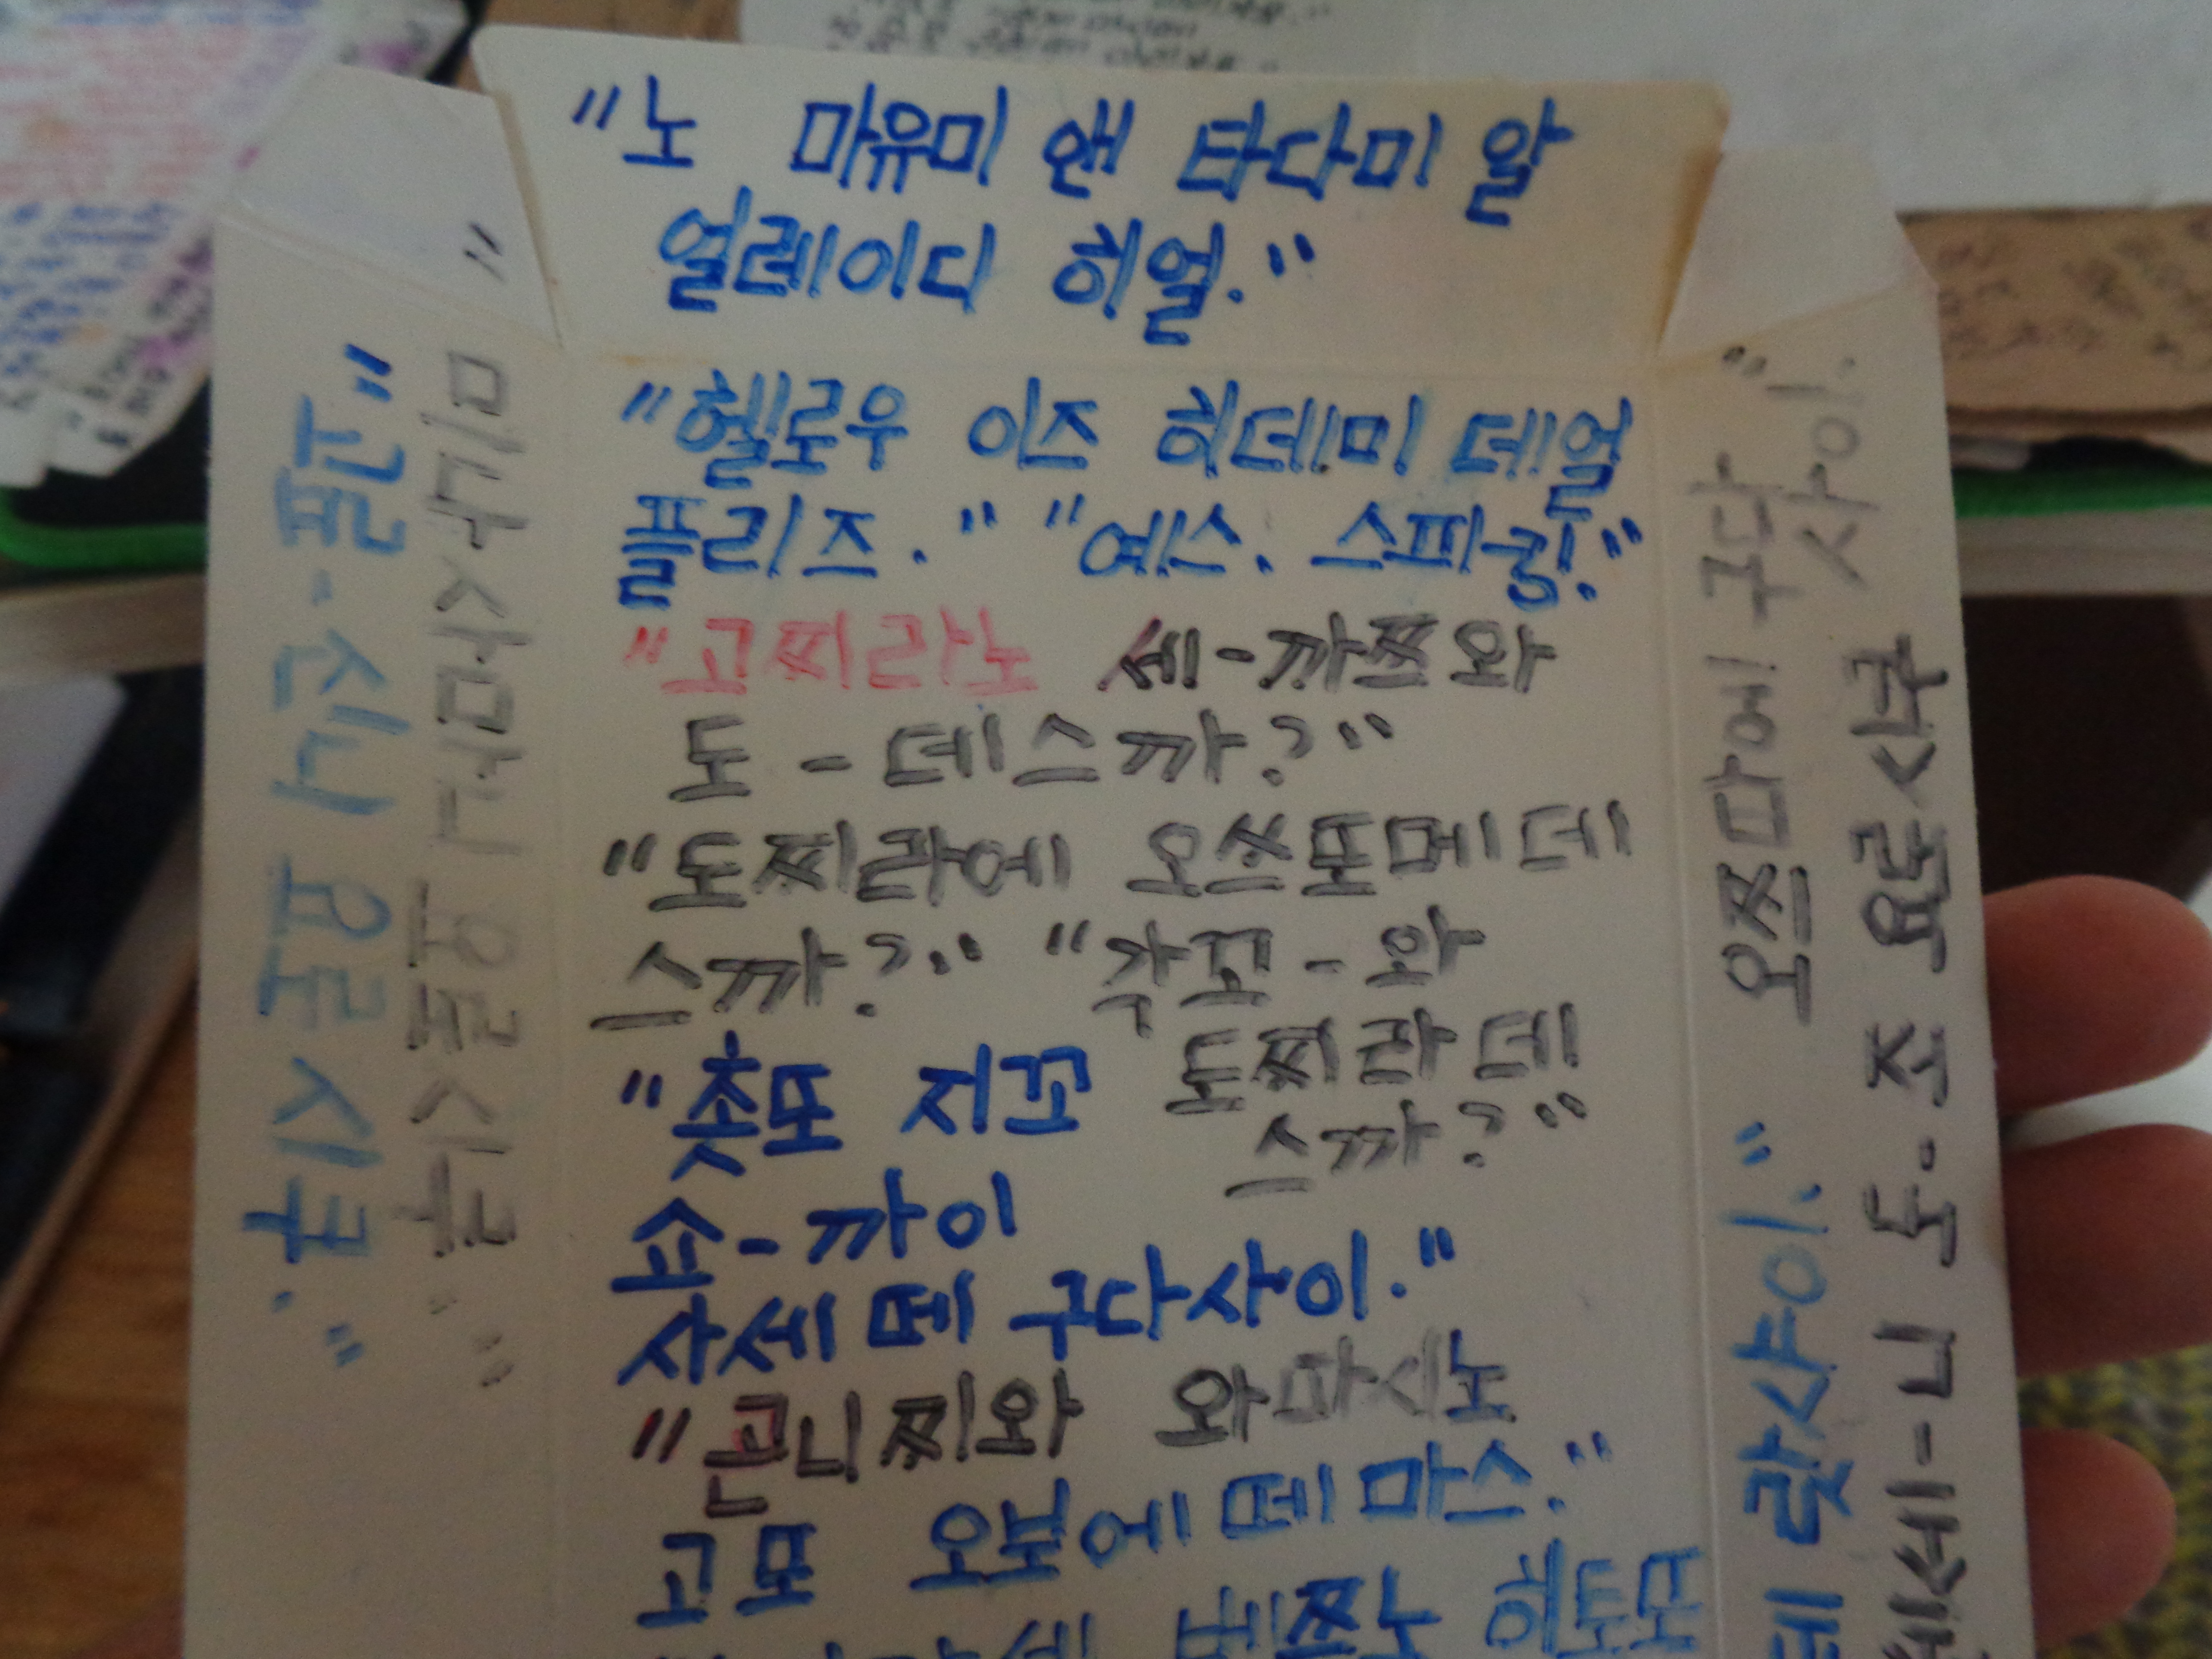 "노 마유미 앤 타다미 알
얼레이디 히얼."
"헬로우 이즈 히데미 데얼
플리즈." "예스. 스피킹."
"고찌라노 세-까쯔와
도-데스까?"
"도찌라에 오쯔또메데
스까?" "각꼬-와
도찌라데
스까?"
"춋또 지꼬
쇼-까이
사세떼 구다사이."
"곤니찌와 와따시노
고또 오보에떼 마스."
베쯔노 히토모
"고료-신니 요로시쿠."
"미나사마니 요로시쿠."
오쯔따에 구다
사이."
랏샤이."
도-조 요로시쿠